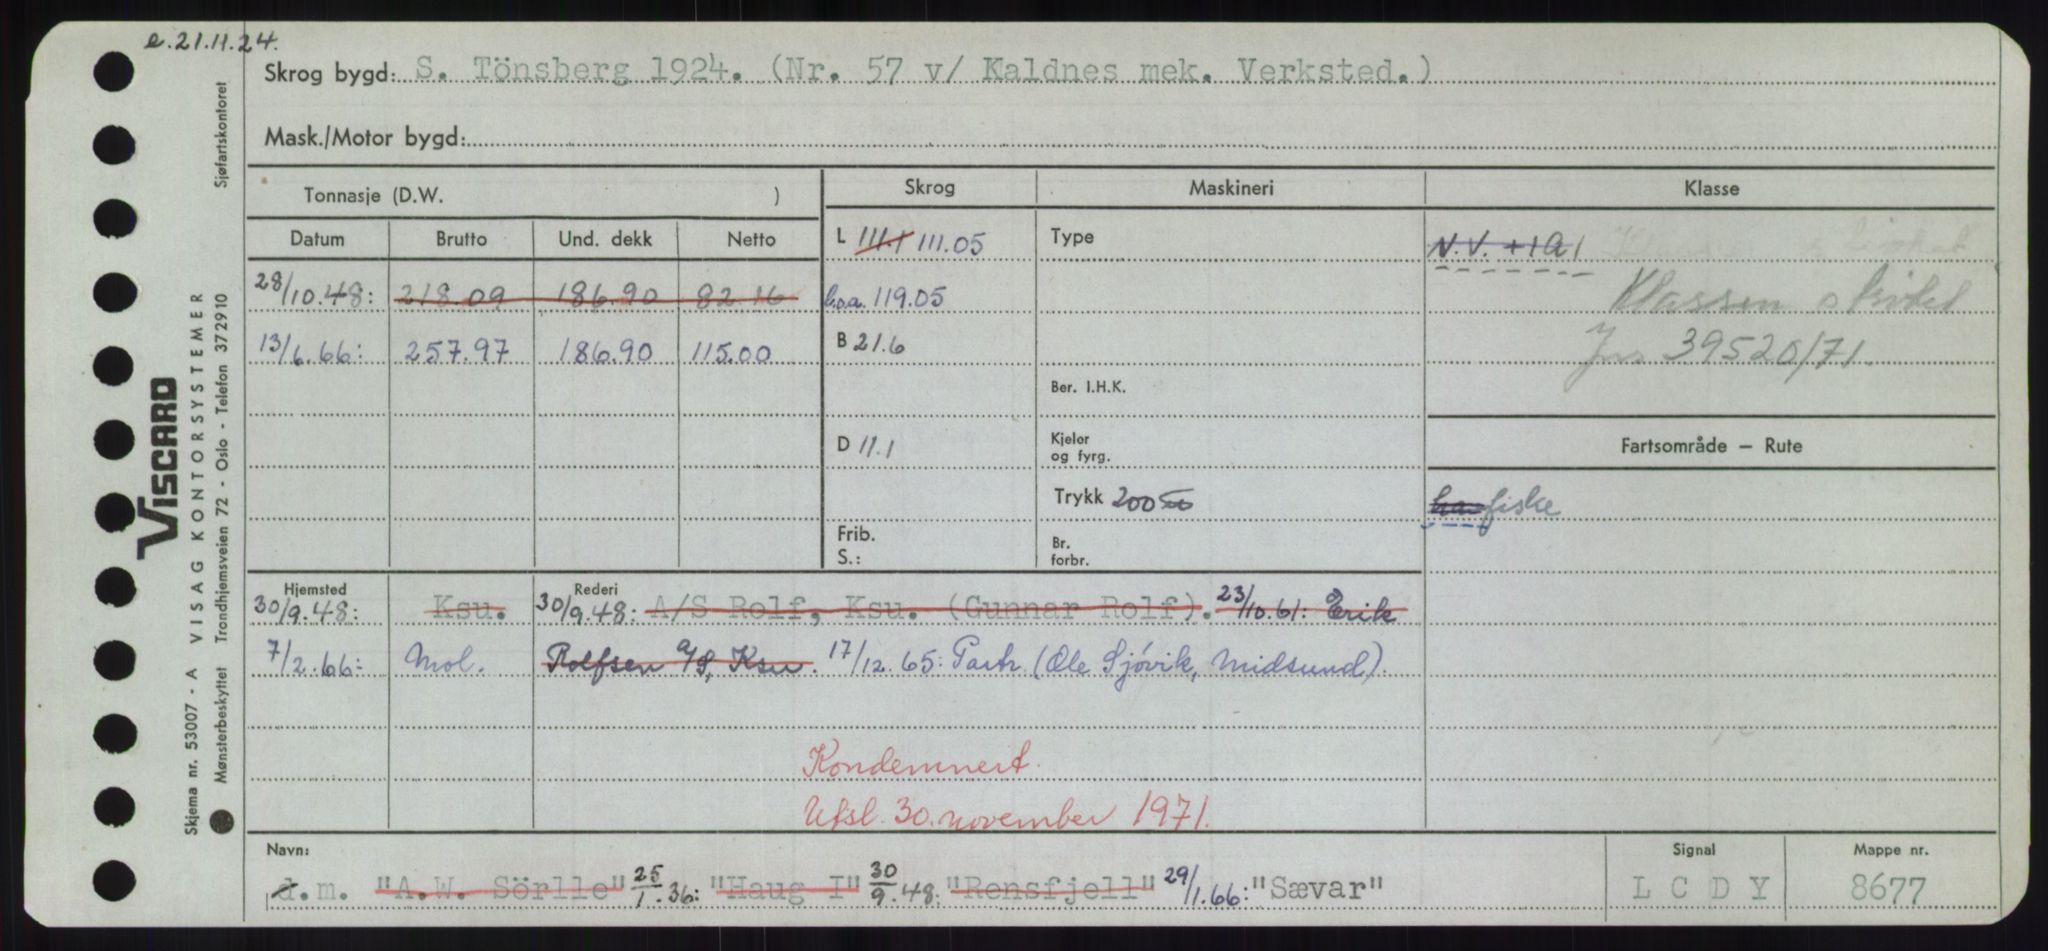 e. 21.11.24.
Skrog bygd: S. Tönsberg 1924. (Nr. 57 v/ Kaldnes mek. Verksted.)
Mask./Motor bygd:
Tonnasje (D.W. )
Datum Brutto Und. dekk Netto
28/10.48: 218.09 186.90 82.16
13/6.66: 257.97 186.90 115.00
Skrog
L 111.1 111.05
l.o.a. 119.05
B 21.6
D 11.1
Frib.
S.:
Maskineri
Type
Ber. I.H.K.
Kjeler
og fyrg.
Trykk 200
Br.
forbr.
Klasse
N.V. +1A1
Klassen slettet
Jnr 39520/71.
Fartsområde – Rute
hav fiske
Hjemsted Rederi
30/9.48: Ksu. 30/9.48: A/S Rolf, Ksu. (Gunnar Rolf). 23/10.61: Erik
7/2.66: Mol. Rolfsen A/S, Ksu. 17/12.65: Partr. (Ole Sjövik, Midsund).
Kondemnert.
Utsl. 30. november 1971.
Navn: Signal Mappe nr.
d.m. "A.W. Sörlle" 25/1.36: "Haug I" 30/9.48: "Rensfjell" 29/1.66: "Sævar" LCDY 8677
VISCARD
Skjema nr. 53007 - A VISAG KONTORSYSTEMER
Mønsterbeskyttet Trondhjemsveien 72 - Oslo - Telefon 372910 Sjøfartskontoret